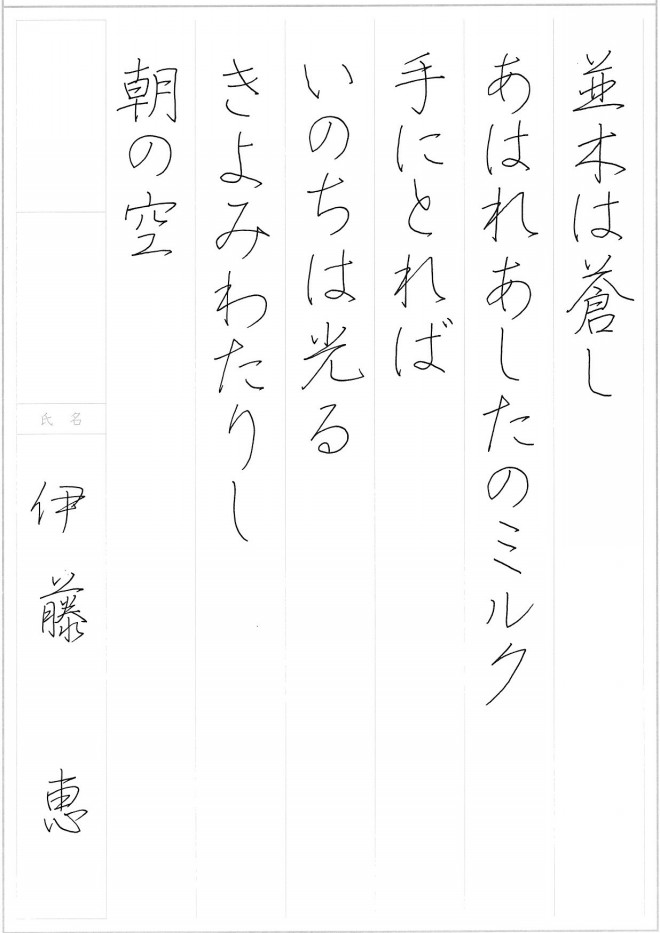 並木は蒼し
あはれあしたのミルク
手にとれば
いのちは光る
きよみわたりし
朝の空
氏名
伊藤 恵